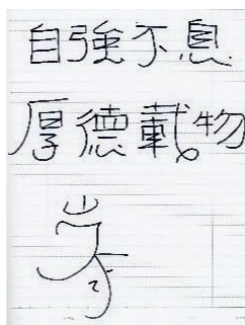 自強不息
厚德載物